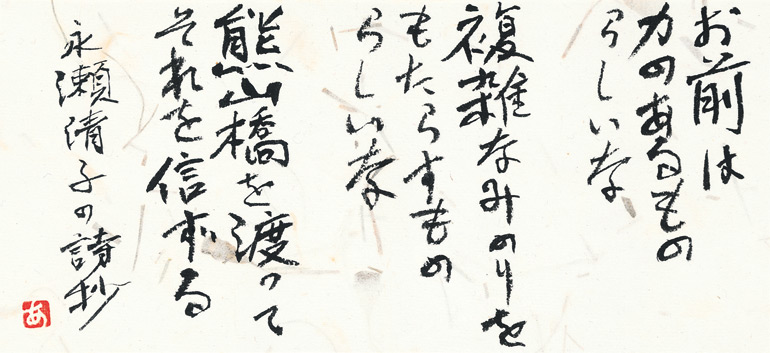 お前は
力のあるもの
らしいな
複雑なみのりを
もたらすもの
らしいな
熊山橋を渡って
それを信ずる
永瀬清子の詩抄
あ